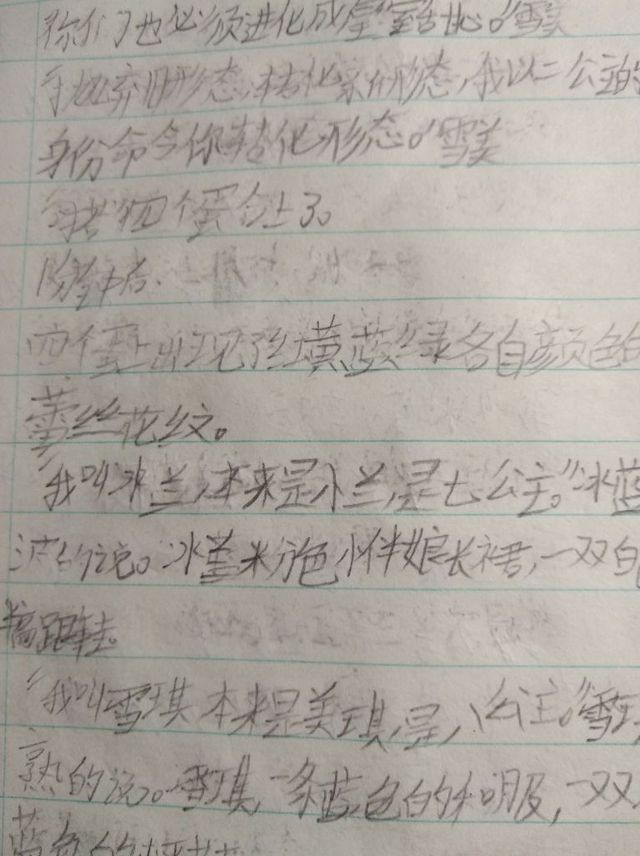 你们也必须进化成皇室。"雪美
抛弃旧形态,转化新形态,我以二公主的
身份命令你转化形态。"雪美
四个蛋合上了。
四个蛋上出现了红黄蓝绿各自颜色
蕾丝花纹。
"我叫冰兰,本来是小兰,是七公主。"冰蓝
的说。冰蓝米分色小伴娘长裙,一双白
高跟鞋。
"我叫雪琪本来是美琪,是八公主。"雪
熟的说。雪琪,一条蓝色白的和服,一双
蓝色的